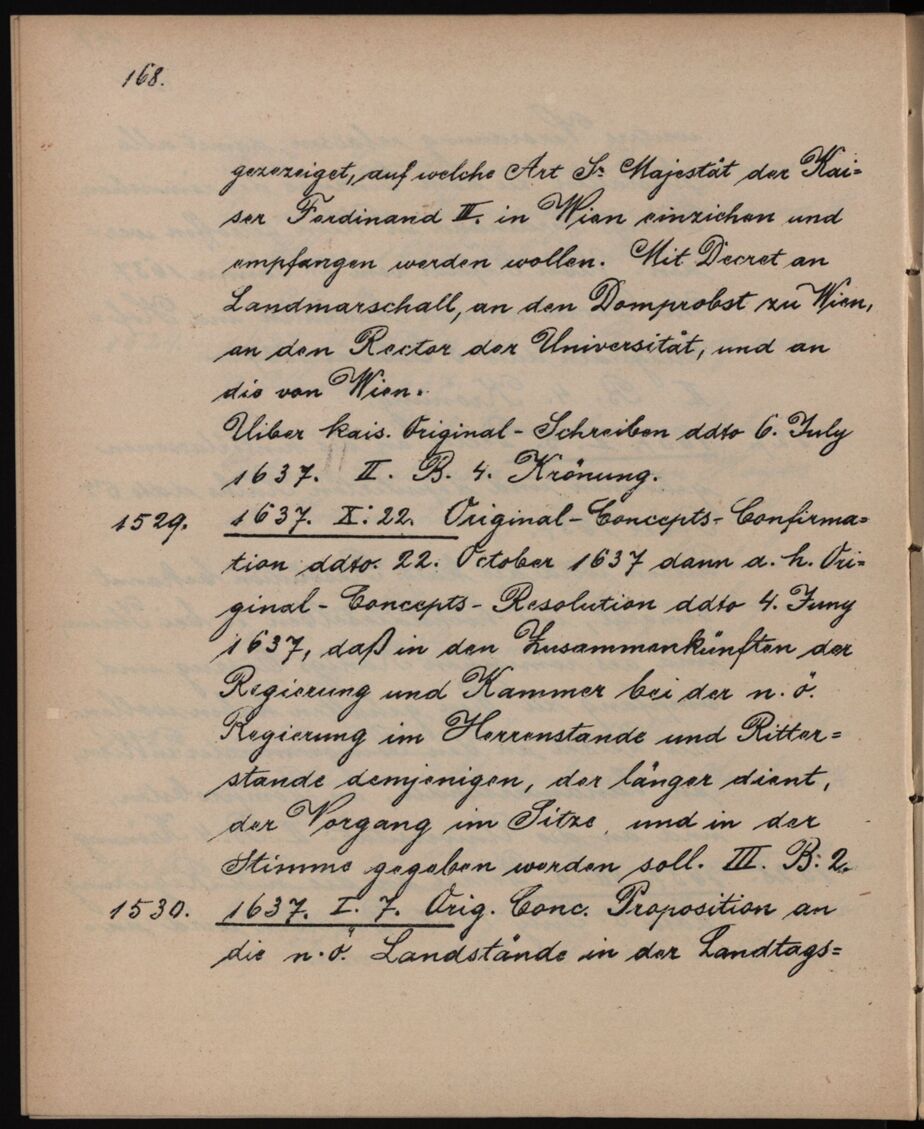 168.
gezezeiget, auf welche Art Sr. Majestät der Kai=
ser Ferdinand III. in Wien einziehen und
empfangen werden wollen. Mit Decret an
Landmarschall, an den Domprobst zu Wien,
an den Rector der Universität, und an
die von Wien.
Uiber kais. Original-Schreiben ddto 6. July
1637. II. B. 4. Krönung.
1529. 1637. X: 22. Original-Concepts-Confirma=
tion ddto. 22. October 1637 dann a. h. Ori=
ginal-Concepts-Resolution ddto 4. Juny
1637, daß in den Zusammenkünften der
Regierung und Kammer bei der n. ö.
Regierung im Herrenstande und Ritter=
stande demjenigen, der länger dient,
der Vorgang im Sitze, und in der
Stimme gegeben werden soll. III. B: 2.
1530. 1637. I. 7. Orig. Conc. Proposition an
die n. ö. Landstände in der Landtags=